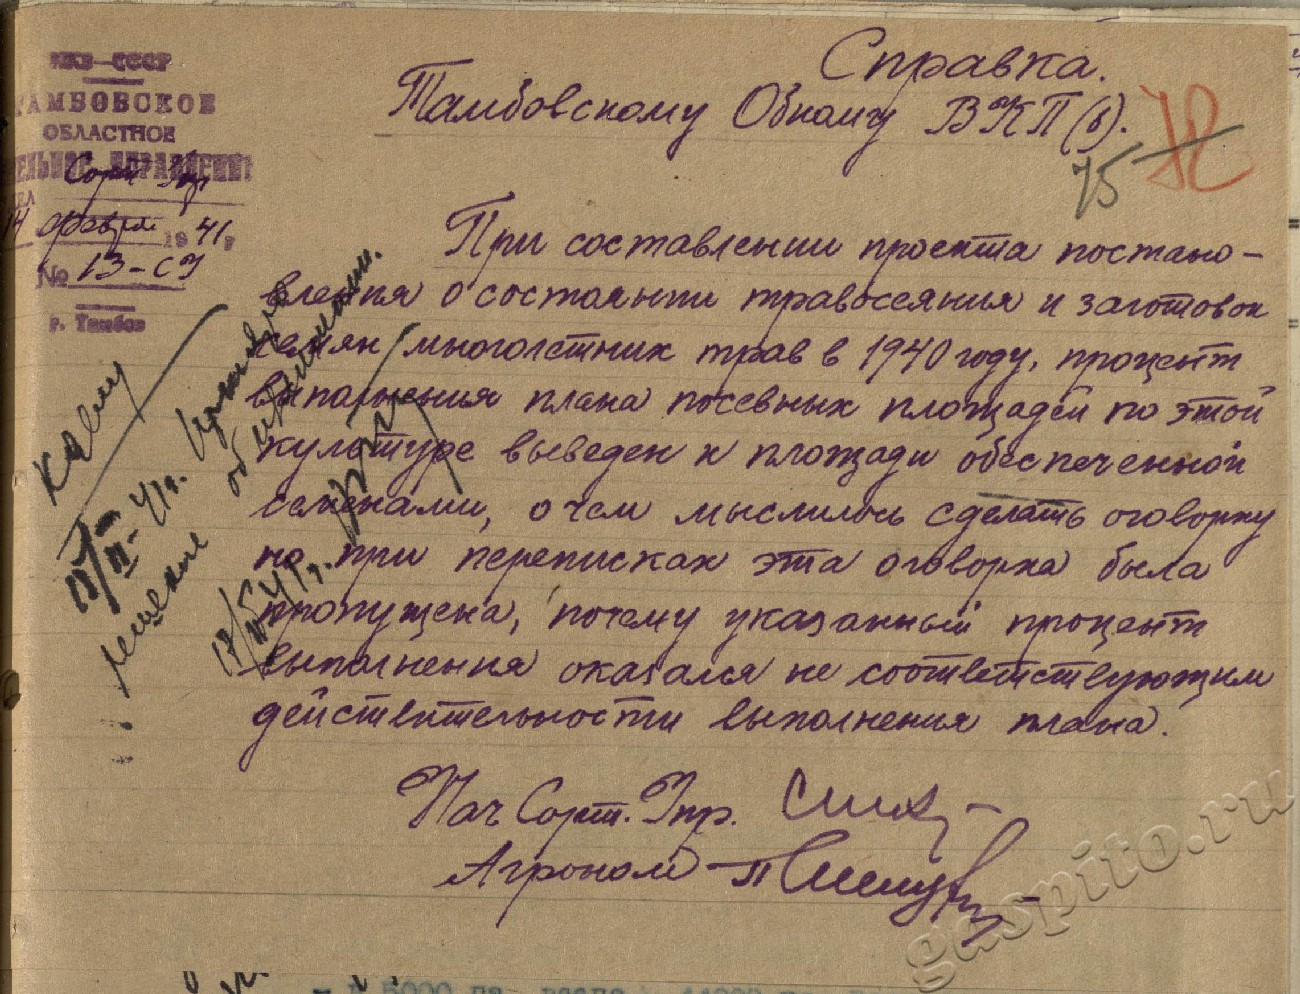 НКЗ–СССР
ТАМБОВСКОЕ
ОБЛАСТНОЕ
ЗЕМЕЛЬНОЕ УПРАВЛЕНИЕ
Сорт Упр
14 февраля 1941 г
№ 13-СУ
г. Тамбов
Справка.
Тамбовскому Обкому ВКП(б).
75
При составлении проекта постано-
вления о состоянии травосеяния и заготовок
семян многолетних трав в 1940 году, процент
выполнения плана посевных площадей по этой
культуре выведен к площади обеспеченной
семенами, о чем мыслилось сделать оговорку
но при переписках эта оговорка была
пропущена, почему указанный процент
выполнения оказался не соответствующим
действительности выполнения плана.
Нач Сорт. Упр.
Агроном
К делу
решение
gaspito.ru